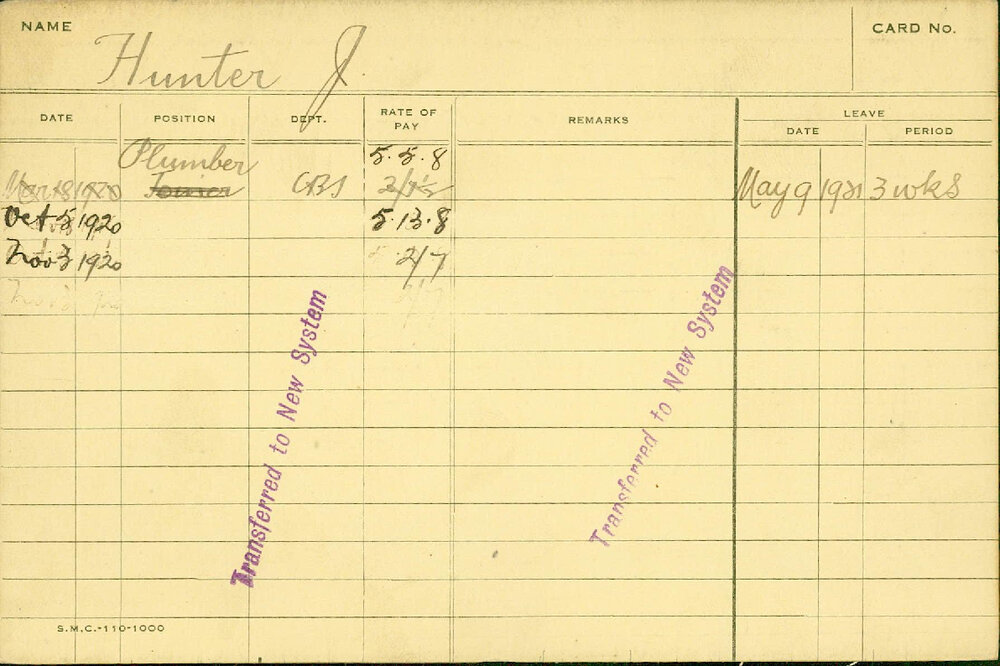 NAME
CARD No.
Hunter J.
DATE POSITION DEPT. RATE OF PAY REMARKS LEAVE
DATE PERIOD
Plumber 5.5.8
Mar 18 1920 CBS May 9 1921 3 wks
Oct 5 1920 5.13.8
Nov 3 1920 2/7
Transferred to New System
Transferred to New System
S.M.C.-110-1000